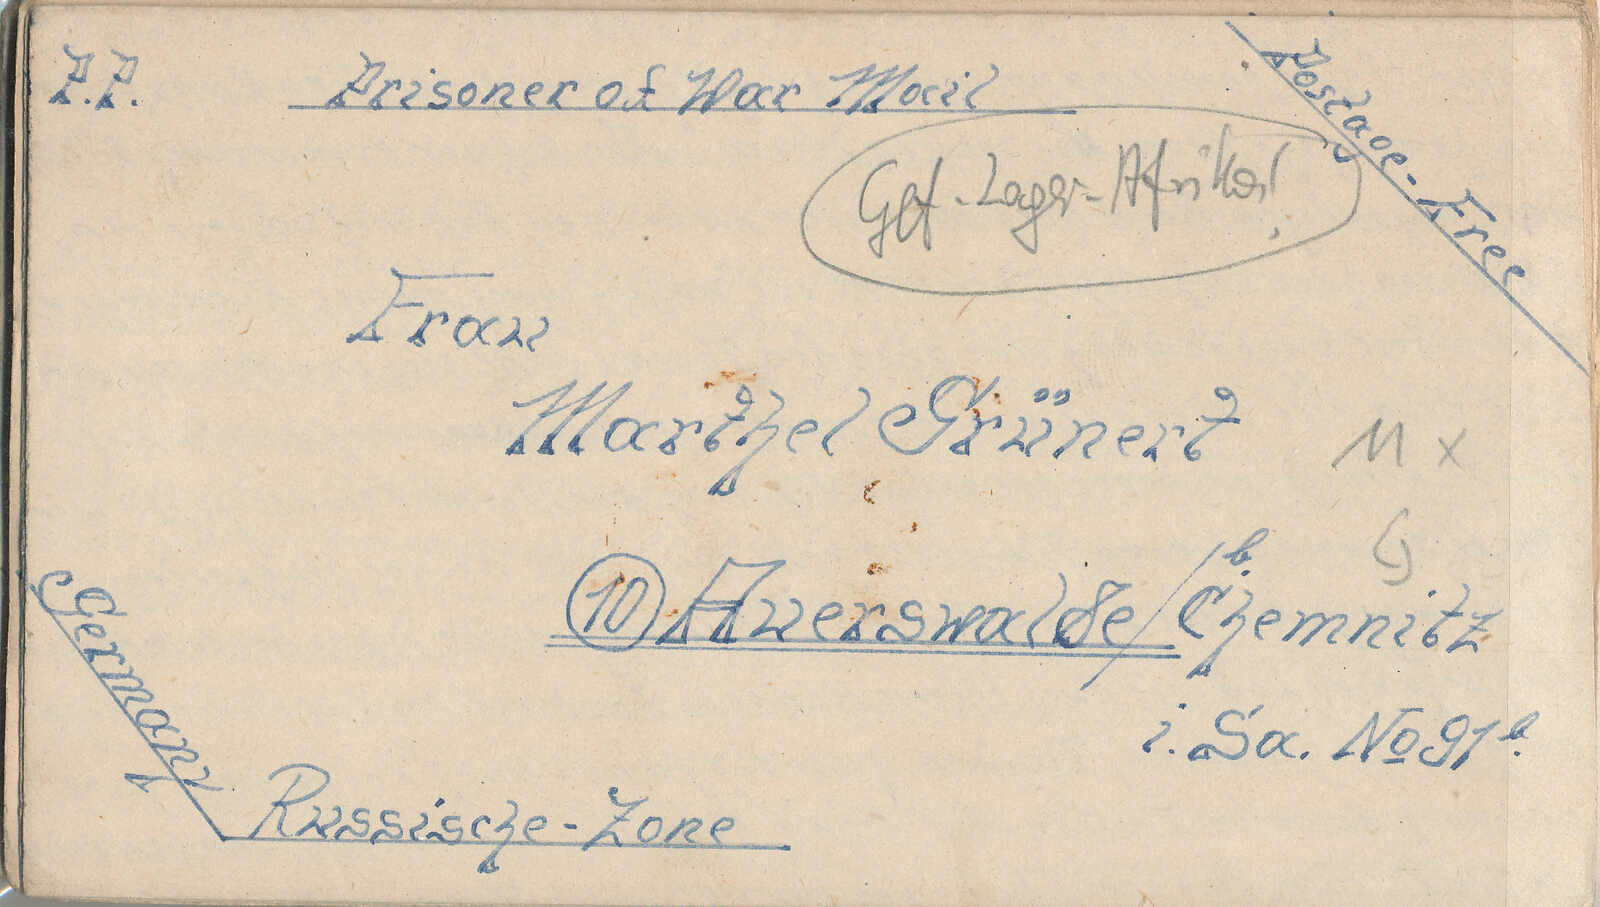 P.P. Prisoner of War Mail
Postage-Free
Gef-Lager-Afrika!
Frau
Marthel Grünert
11 x
10 Auerswalde / b. Chemnitz
i. Sa. No 91 b.
Germany
Russische-Zone